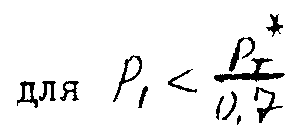 для P₁ < P_T* / 0,7